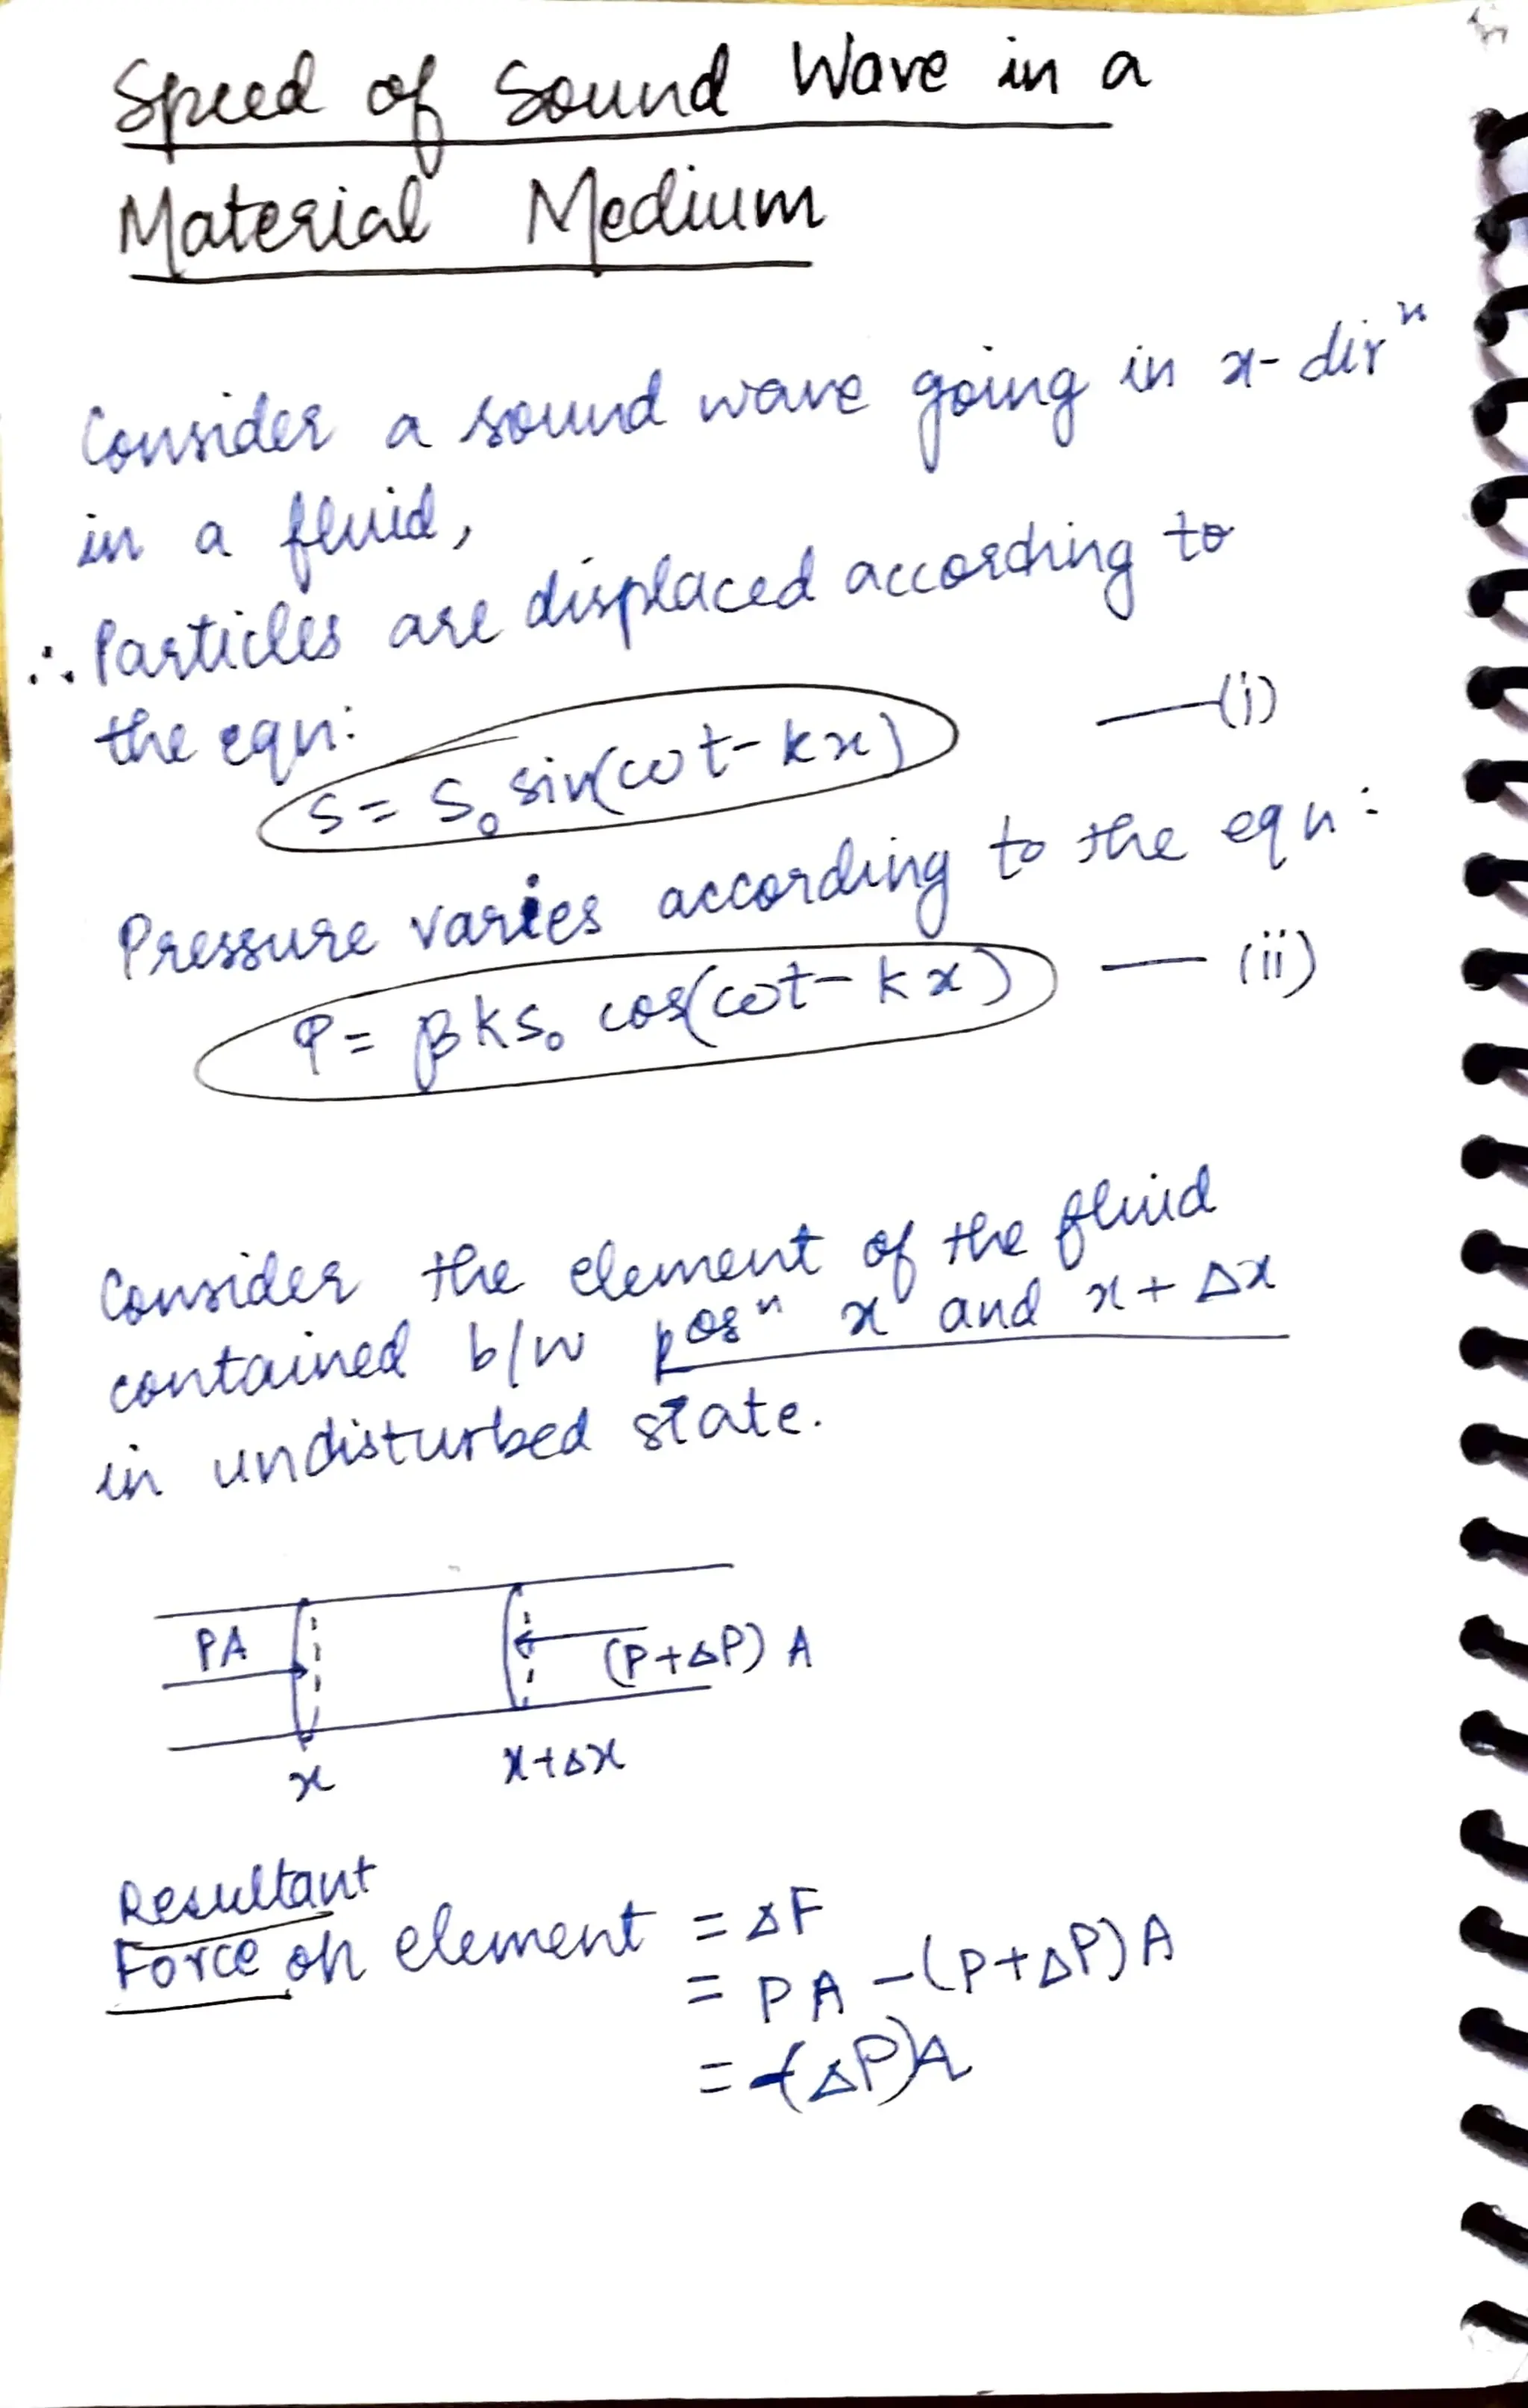 Speed of Sound Wave in a
Material Medium
Consider a sound wave going in x-dirⁿ
in a fluid,
∴ Particles are displaced according to
the eqn:
S = S₀ sin(ωt - kx) —(i)
Pressure varies according to the eqn:
P = βkS₀ cos(ωt - kx) — (ii)
Consider the element of the fluid
contained b/w posⁿ x and x + Δx
in undisturbed state.
PA
(P+ΔP) A
x
x+Δx
Resultant
Force on element = ΔF
= PA - (P+ΔP)A
= -(ΔP)A